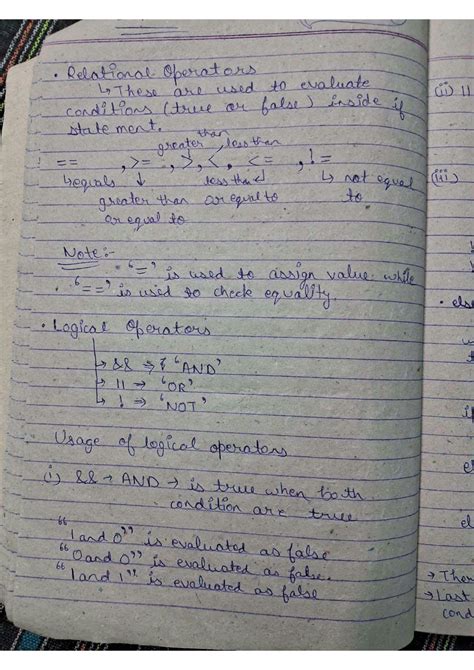 • Relational Operators
↳ These are used to evaluate
conditions (true or false) inside if
statement.
greater than, less than
== , >= , > , < , <= , !=
↳ equals ↓ less than ↲ ↳ not equal
greater than or equal to to
or equal to
Note:-
• '=' is used to assign value while
• '==' is used to check equality.
• Logical Operators
↳ && ⇒ { 'AND'
↳ || ⇒ 'OR'
↳ ! ⇒ 'NOT'
Usage of logical operators
(i) && → AND → is true when both
condition are true
"1 and 0" is evaluated as false
"0 and 0" is evaluated as false.
"1 and 1" is evaluated as false
(ii) ||
(iii)
• else
if
el
el
→ Ther
→ Last
cond